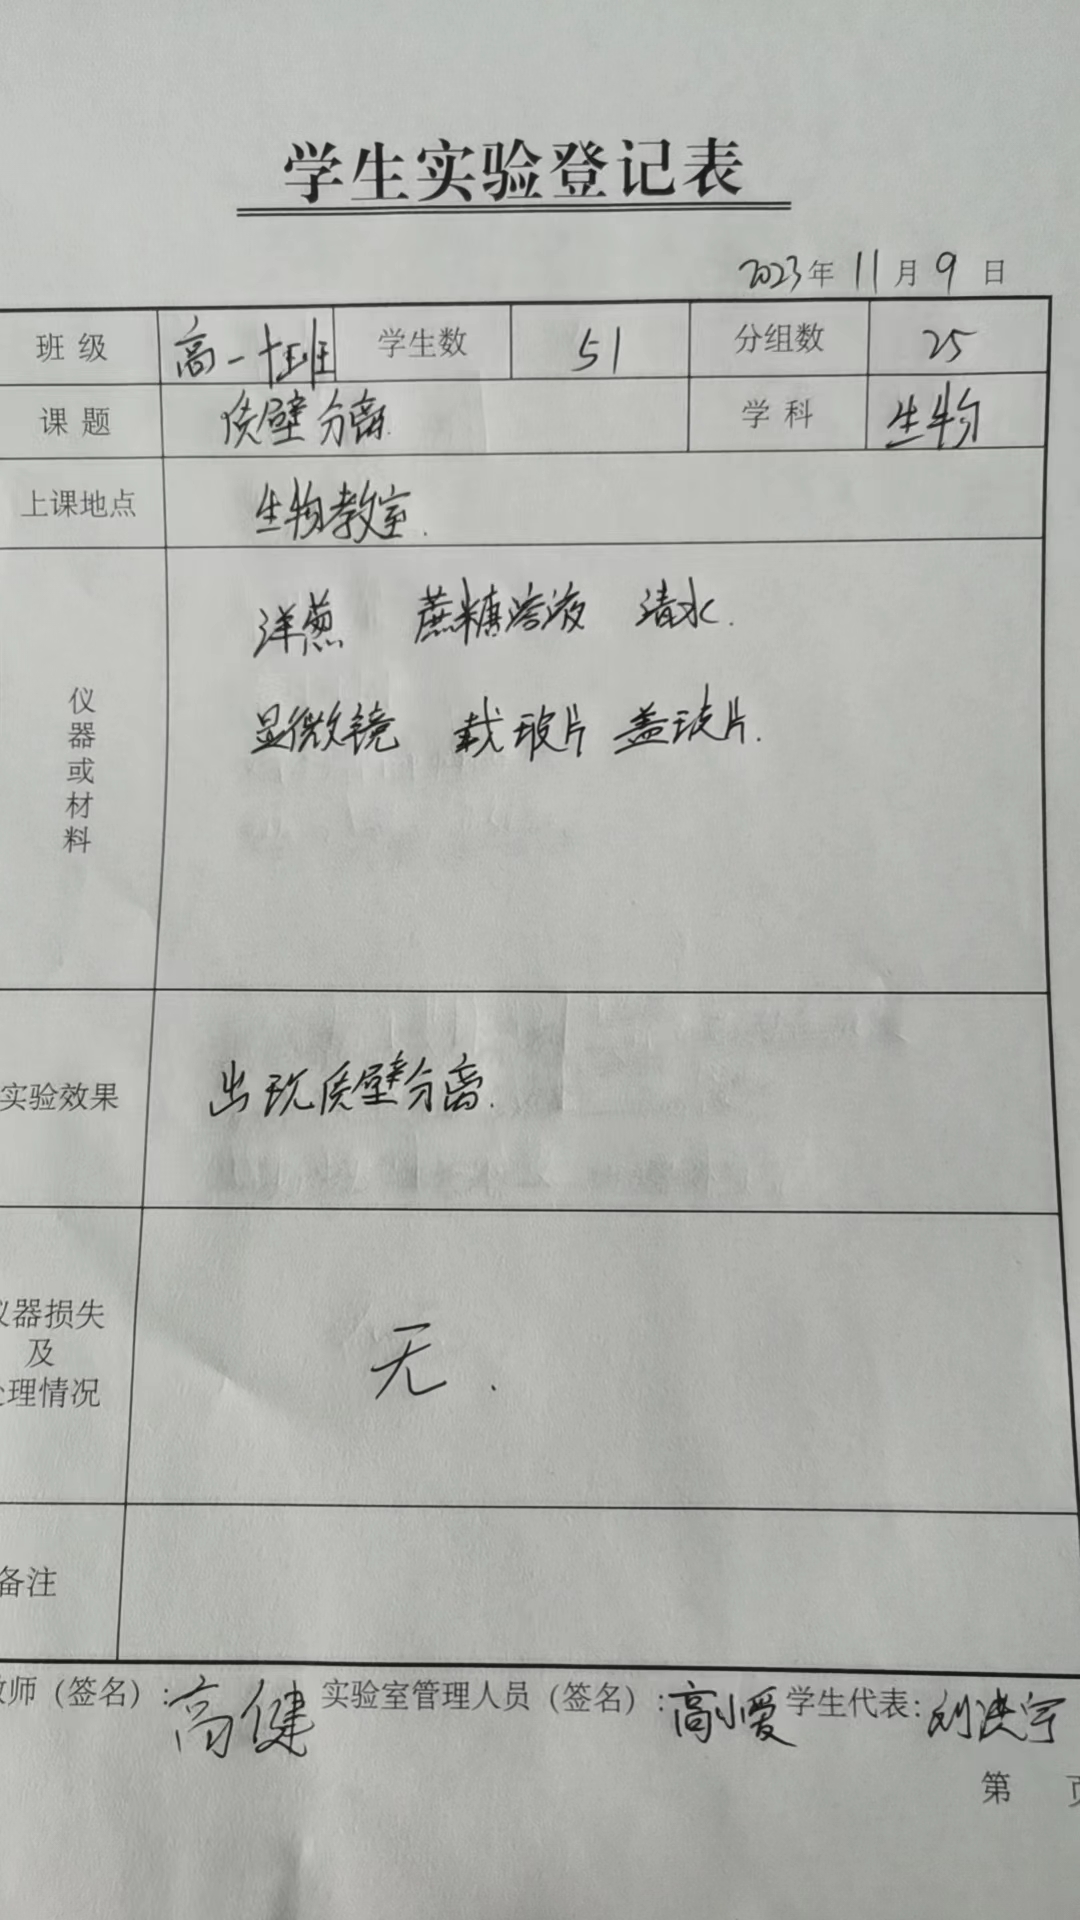 学生实验登记表
2023年 11月 9日
班级 高一十班 学生数 51 分组数 25
课题 质壁分离. 学科 生物
上课地点 生物教室.
仪器或材料
洋葱 蔗糖溶液 清水.
显微镜 载玻片 盖玻片.
实验效果 出现质壁分离.
仪器损失
及
处理情况
无.
备注
教师（签名）：高健 实验室管理人员（签名）：高小爱 学生代表：刘洪宇
第 页